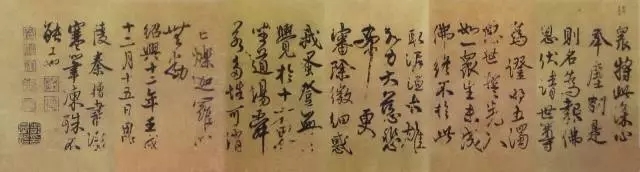 眾將此深心
奉塵剎是
則名為報佛
恩伏請世尊
為證明五濁
惡世誓先入
如一眾生未成
佛終不於此
取泥洹大雄
大力大慈悲
希更
審除微細惑
我蚤登無上
覺於十方界
坐道場舜
若多性可銷
亡爍迦羅心
無動
紹興十二年壬戌
十二月十五日
陵秦檜書
寒筆凍殊不
能工也